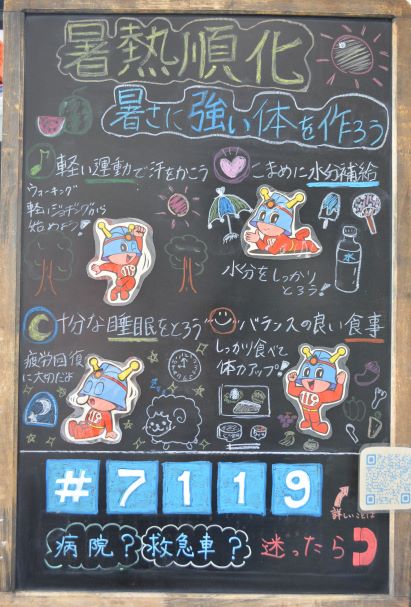 暑熱順化
暑さに強い体を作ろう
軽い運動で汗をかこう
ウォーキング
軽いジョギングから
始めよう!
119
こまめに水分補給
水
水分をしっかり
とろう!
十分な睡眠をとろう
疲労回復
に大切だよ
119
バランスの良い食事
しっかり食べて
体力アップ!
119
#7119
詳しいことは
病院?救急車?迷ったら